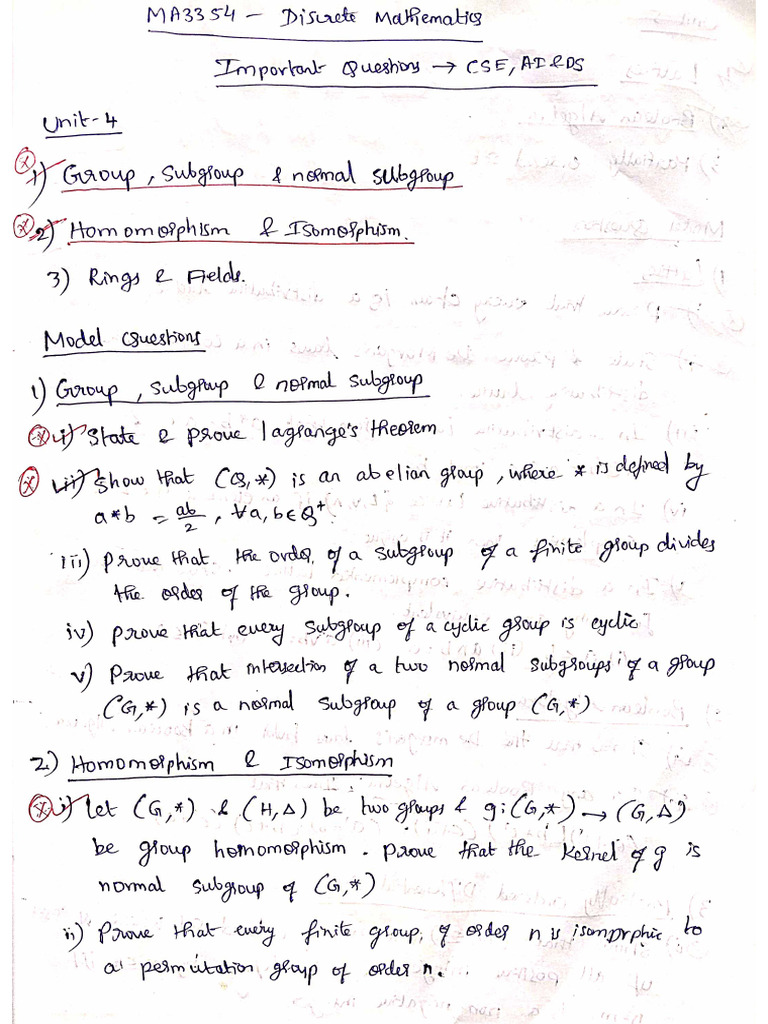 MA3354 - Discrete Mathematics
Important Questions → CSE, AI & DS
Unit-4
1) Group, Subgroup & normal subgroup
2) Homomorphism & Isomorphism.
3) Rings & Fields.
Model Questions
1) Group, subgroup & normal subgroup
i) State & prove lagrange's theorem
ii) Show that (Q,*) is an abelian group, where * is defined by
a*b = ab/2, ∀a,b∈Q⁺
iii) Prove that the order of a subgroup of a finite group divides
the order of the group.
iv) prove that every subgroup of a cyclic group is cyclic
v) Prove that intersection of a two normal subgroups of a group
(G,*) is a normal subgroup of a group (G,*)
2) Homomorphism & Isomorphism
i) let (G,*) & (H,∆) be two groups & g:(G,*)→(G,∆)
be group homomorphism. prove that the kernel of g is
normal subgroup of (G,*)
ii) Prove that every finite group, of order n is isomorphic to
a permutation group of order n.